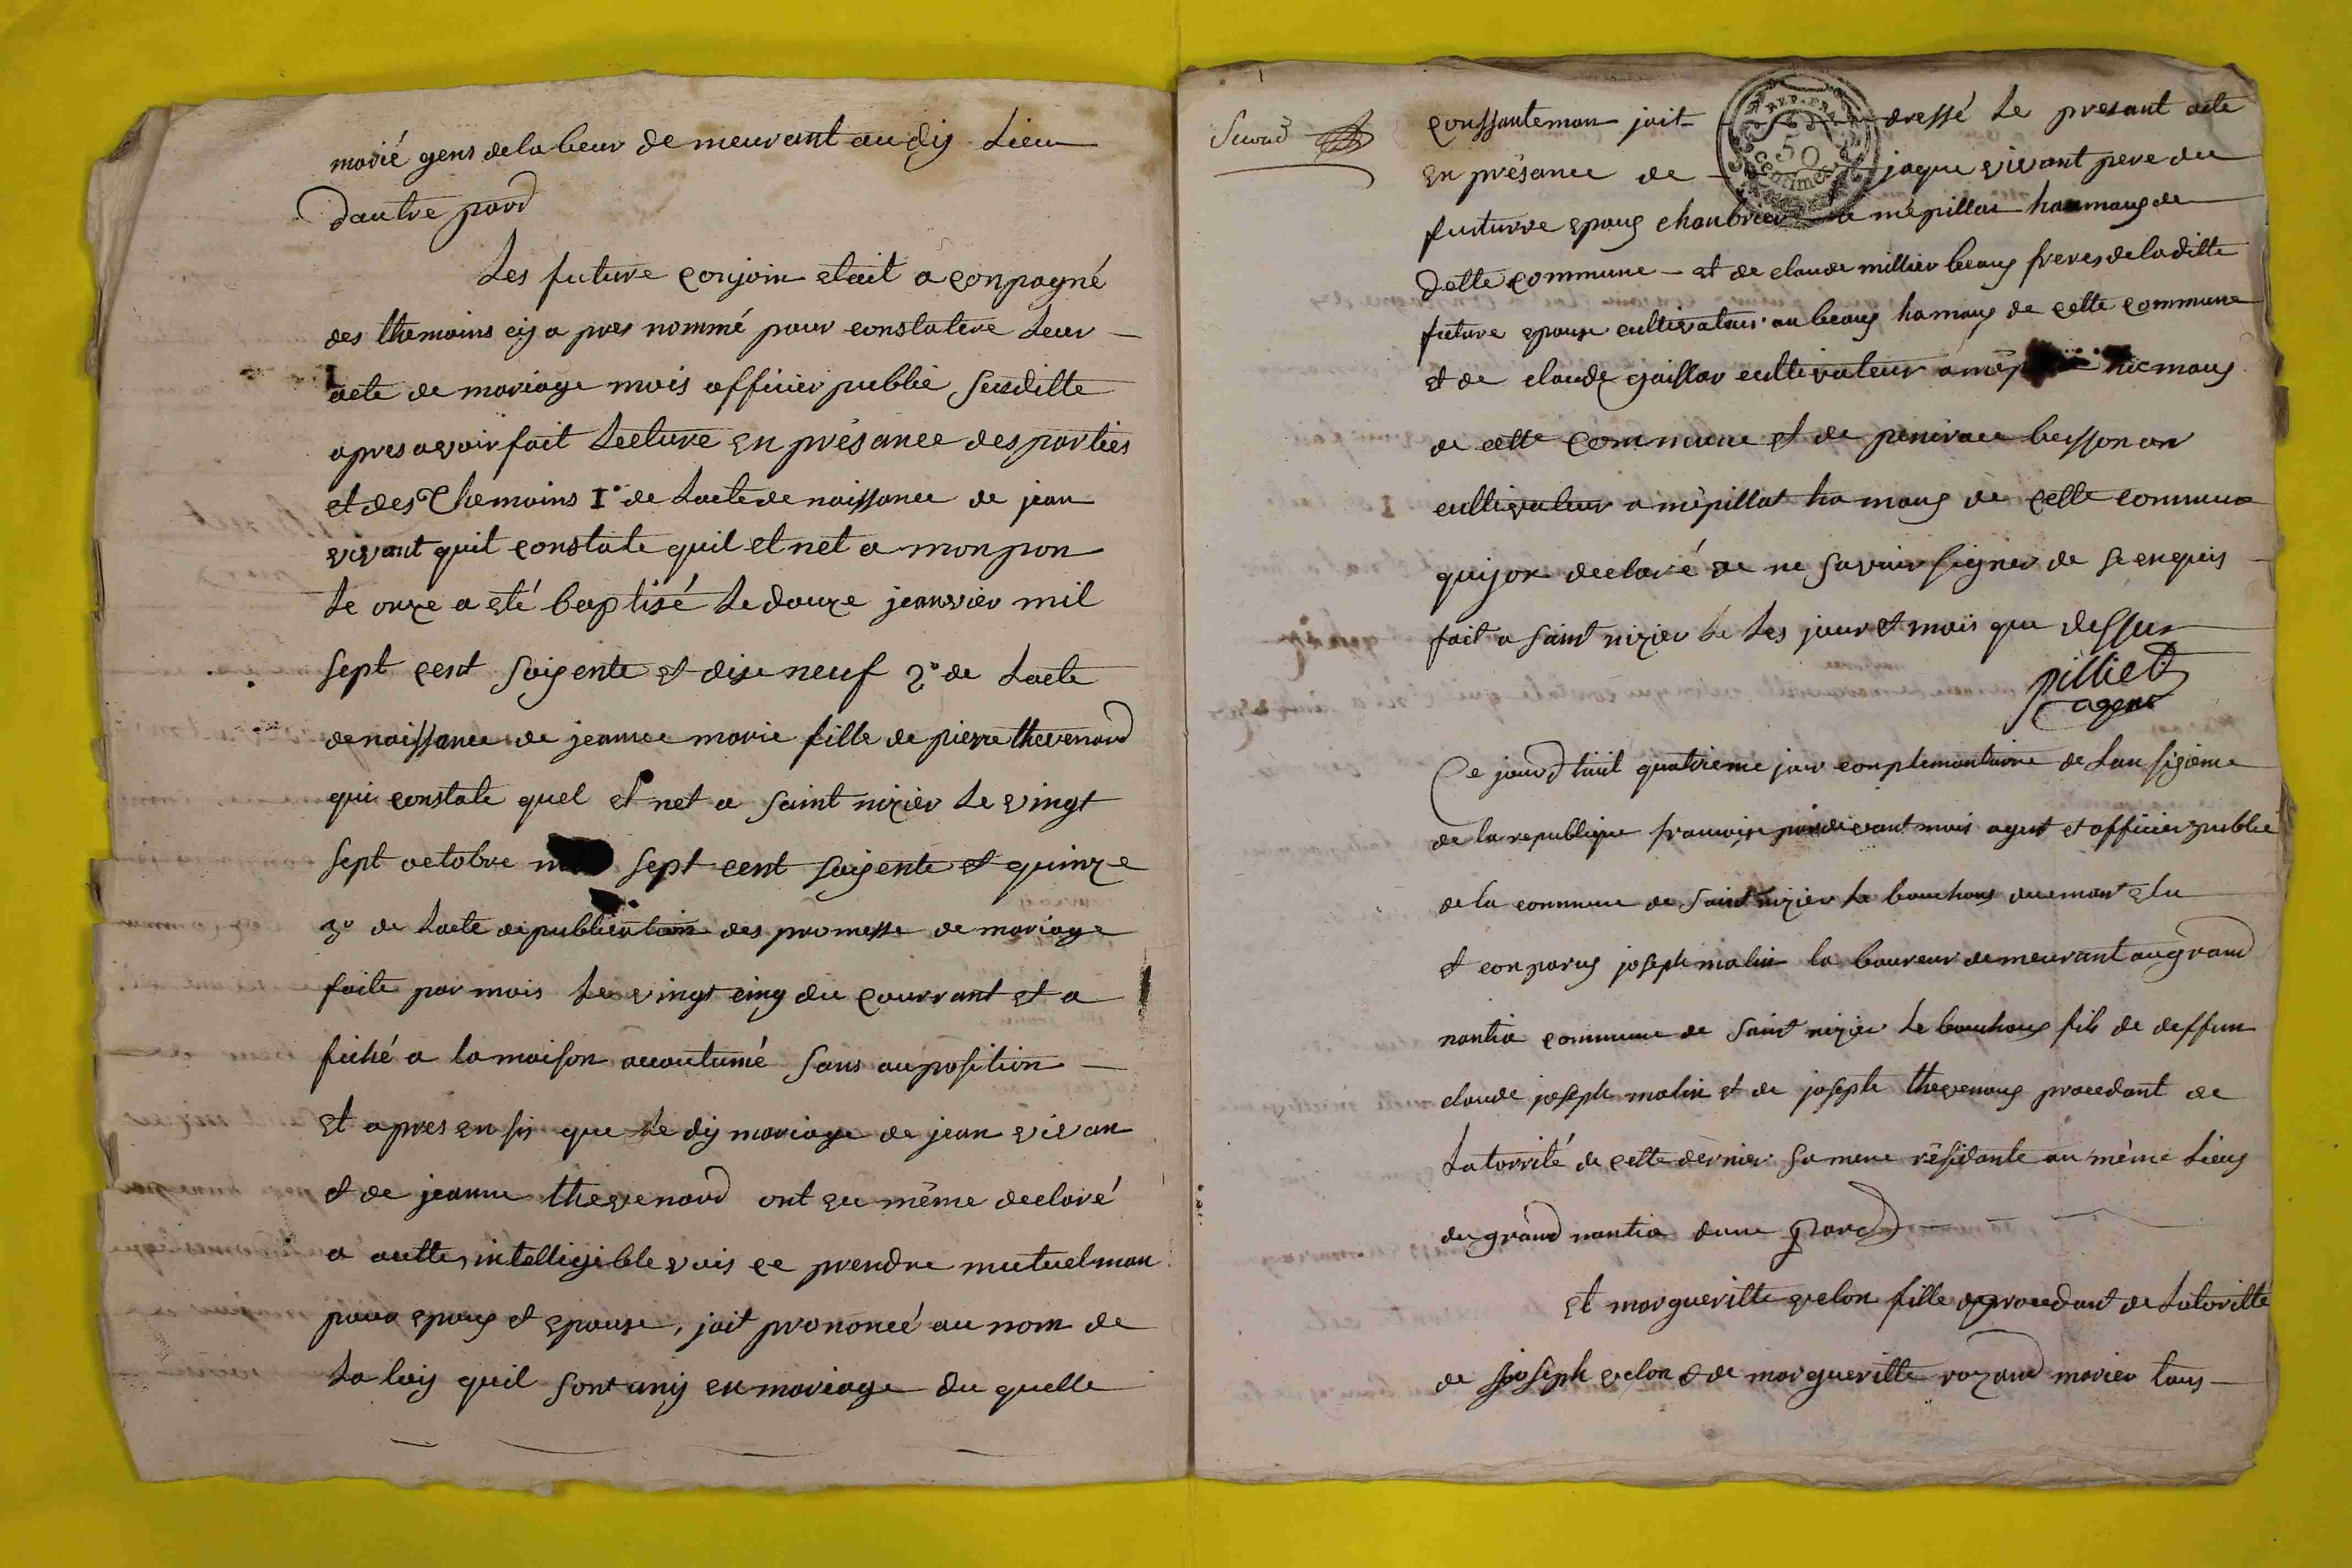 marié gens de la beur de meurant au dis Lieu
dautre pard
Les future conjoin etait a conpagné
des themoins cis a pres nommé pour constatere Leur
acte de mariage mois officier publie susditte
apres avoir fait Lecture en présance des parties
et des Themoins 1° de Lacte de naissance de jean
vivant quit constate quil et net a monpon
Le onze a eté baptisé Le douze jeanvier mil
sept cent soisente et dise neuf 2° de Lacte
de naissance de jeanne marie fille de pierre thevenard
qui constate quel et net a saint nizier Le vingt
sept octobre sept cent soisente et quinze
3° de Lacte de publication des promesse de mariage
faite par mois Le vingt cinq du courrant et a
fiché a la maison accoutumé sans auposition
et apres en sis que Le dis mariage de jean vivan
et de jeanne thevenard ont eu même declaré
a autte, intelligible vois ce prendre mutuelman
pour epous et epouse, jait prononcé au nom de
La lois quil sont unis en mariage du quelle
conssanteman jait dressé Le presant acte
REP. FRA
50
centimes
en présance de jaque vivant pere du
futurre epous chanbrier a mépillat hammaus de
dette commune et de claude millier beaus freres de laditte
future epouse cultivateur au beaus hamaus de cette commune
et de claude gaillar cultivateur a mép maus
de cette commune et de buisson an
cultivateur a mépillat ha maus de cette commune
qui jon declaré de ne savoir signer de se enquis
fait a saint nizier Le Les jour et mois que dessus
pilliet
agent
Ce jourd huit quatrieme jour conplemantaire de Lan sisieme
de la republique francoise pardevant mois agent et officier publie
de la commune de saint nizier Le bouchous duemant elu
et conparus joseph malin la boureur demeurant au grand
nantia commune de saint nizier Le bouchous fils de deffun
claude joseph malin et de josepte thevenous procedant de
Latorrité de cette dernier sa mere résidante au même Lieus
du grand nantia dune pard
et margueritte velon fille procedant de Latoritté
de joseph velon & de margueritte rozand marier tous